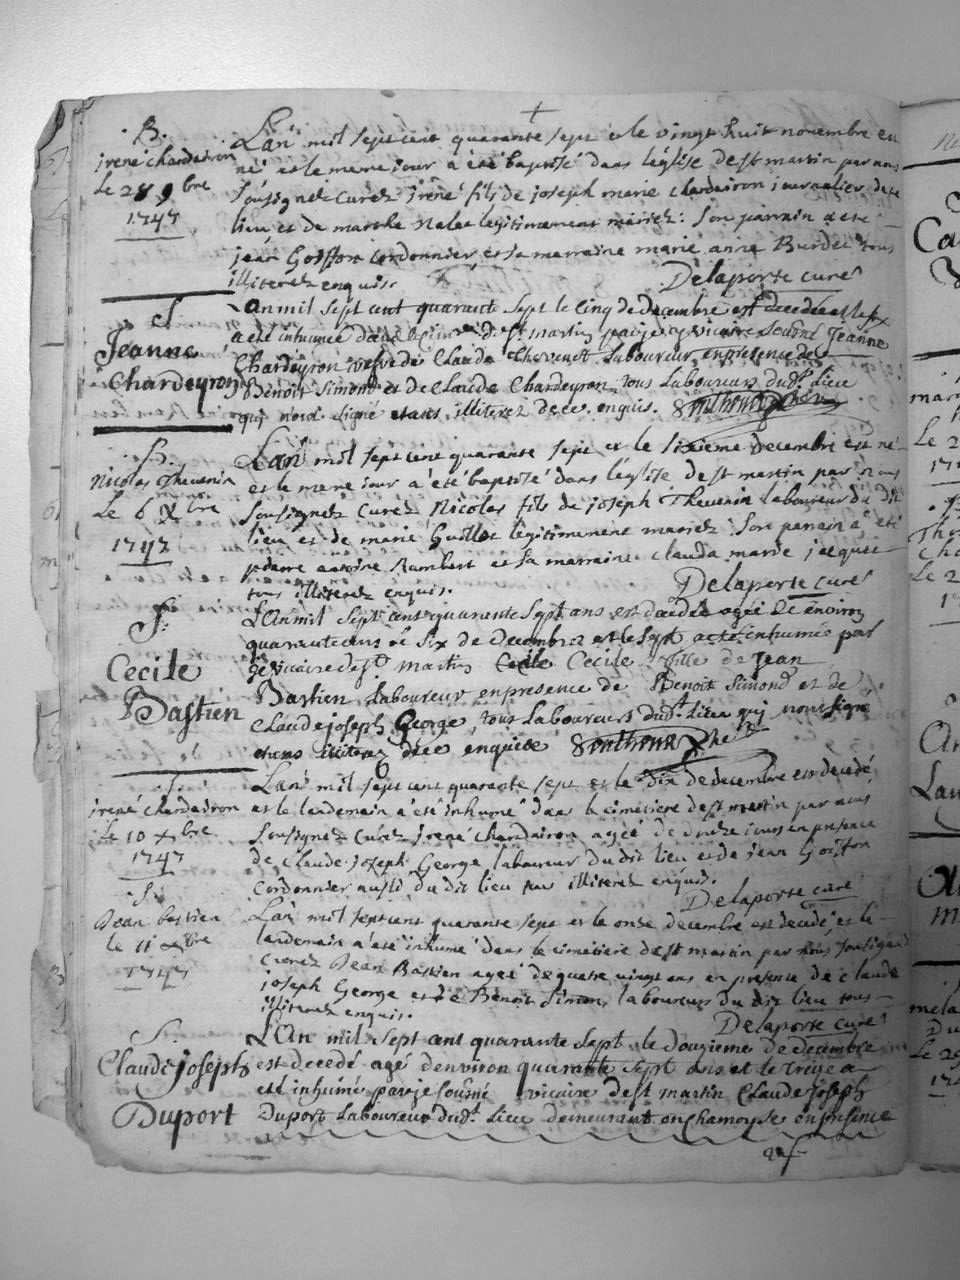 B.
irené chardeiron
le 28 9bre
1747
L'an mil sept cent quarante sept et le vingt huit novembre est
né et le meme jour a été baptisé dans l'église de st martin par nous
soussignez curez irené fils de joseph marie chardeiron journalier de ce
lieu et de marthe Nalet legitimement mariez: son parrain a été
jean Goiffon cordonnier et sa marraine marie anne Burdet tous
illiterez enquis.
Delaporte curé
S
Jeanne
Chardeyron
L'an mil sept cent quarante sept le cinq de decembre est decedée et le six
a été inhumée dans le cimre de st martin par je vicaire sousné Jeanne
Chardeyron vefve de Claude Thevenet Laboureur en presence de
Benoit Simond et de Claude Chardeyron tous Laboureurs dudt Lieu
qui n'ont signé etants illiterez de ce enquis.
B.
Nicolas Thevenin
Le 6 Xbre
1747
L'an mil sept cent quarante sept et le sixieme decembre est né
et le meme jour a été baptisé dans l'église de st martin par nous
soussignez curez Nicolas fils de joseph Thevenin laboureur du dit
lieu et de marie Guillot legitimement mariez: son parrain a été
pierre antoine Rambert et sa marraine clauda marie jacquet
tous illiterez enquis.
Delaporte curé
S.
Cecile
Bastien
L'an mil sept cent quarante sept ans est decedée agée de environ
quarante ans le six de decembre et le sept a eté inhumée par
je vicaire de st martin Cecile fille de Jean
Bastien Laboureur en presence de Benoit Simond et de
Claude joseph George, tous Laboureurs dudt Lieu qui n'ont signé
etans illiterez de ce enquise
S.
irené chardeiron
Le 10 Xbre
1747
L'an mil sept cent quarante sept et le dix de decembre est decedé
et le lendemain a été inhumé dans le cimetiere de st martin par nous
soussignez curez irené chardeiron agéé de onze jours en presence
de claude joseph George laboureur du dit lieu et de jean Goiffon
cordonnier aussi du dit lieu tous illiterez enquis.
Delaporte curé
S.
Jean bastien
le 11 Xbre
1747
L'an mil sept cent quarante sept et le onze decembre est decedé, et le
lendemain a été inhumé dans le cimetiere de st martin par nous soussigné
curez Jean Bastien ageé de quatre vingt ans en presence de claude
joseph George et de Benoit Simon laboureurs du dit lieu tous
illiterez enquis.
Delaporte curé
S.
Claude joseph
Duport
L'An mil sept cent quarante sept le douzieme de decembre
est decedé agé d'environ quarante sept ans et le treize a
eté inhumé par je sousné vicaire de st martin Claude joseph
Duport Laboureur dudt Lieu demeurant en chamoyse en presence